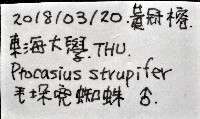 2018/03/20.黃冠榕.
東海大學.THU.
Ptocasius strupifer
毛垛兜蜘蛛 ♂.